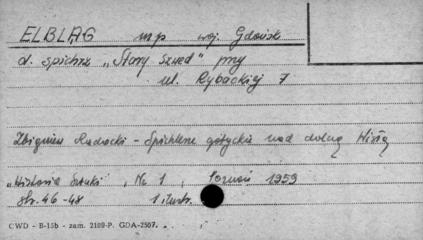 ELBLĄG mp woj. Gdańsk
d. spichrz "Stary Szwed" przy
ul. Rybackiej 7
Zbigniew Radacki - Spichlerze gotyckie nad dolną Wisłą
"Historia Sztuki", Nr 1, Poznań 1959
str. 46-48 1 ilustr.
CWD - B-15b - zam. 2109-P. GDA-2507.